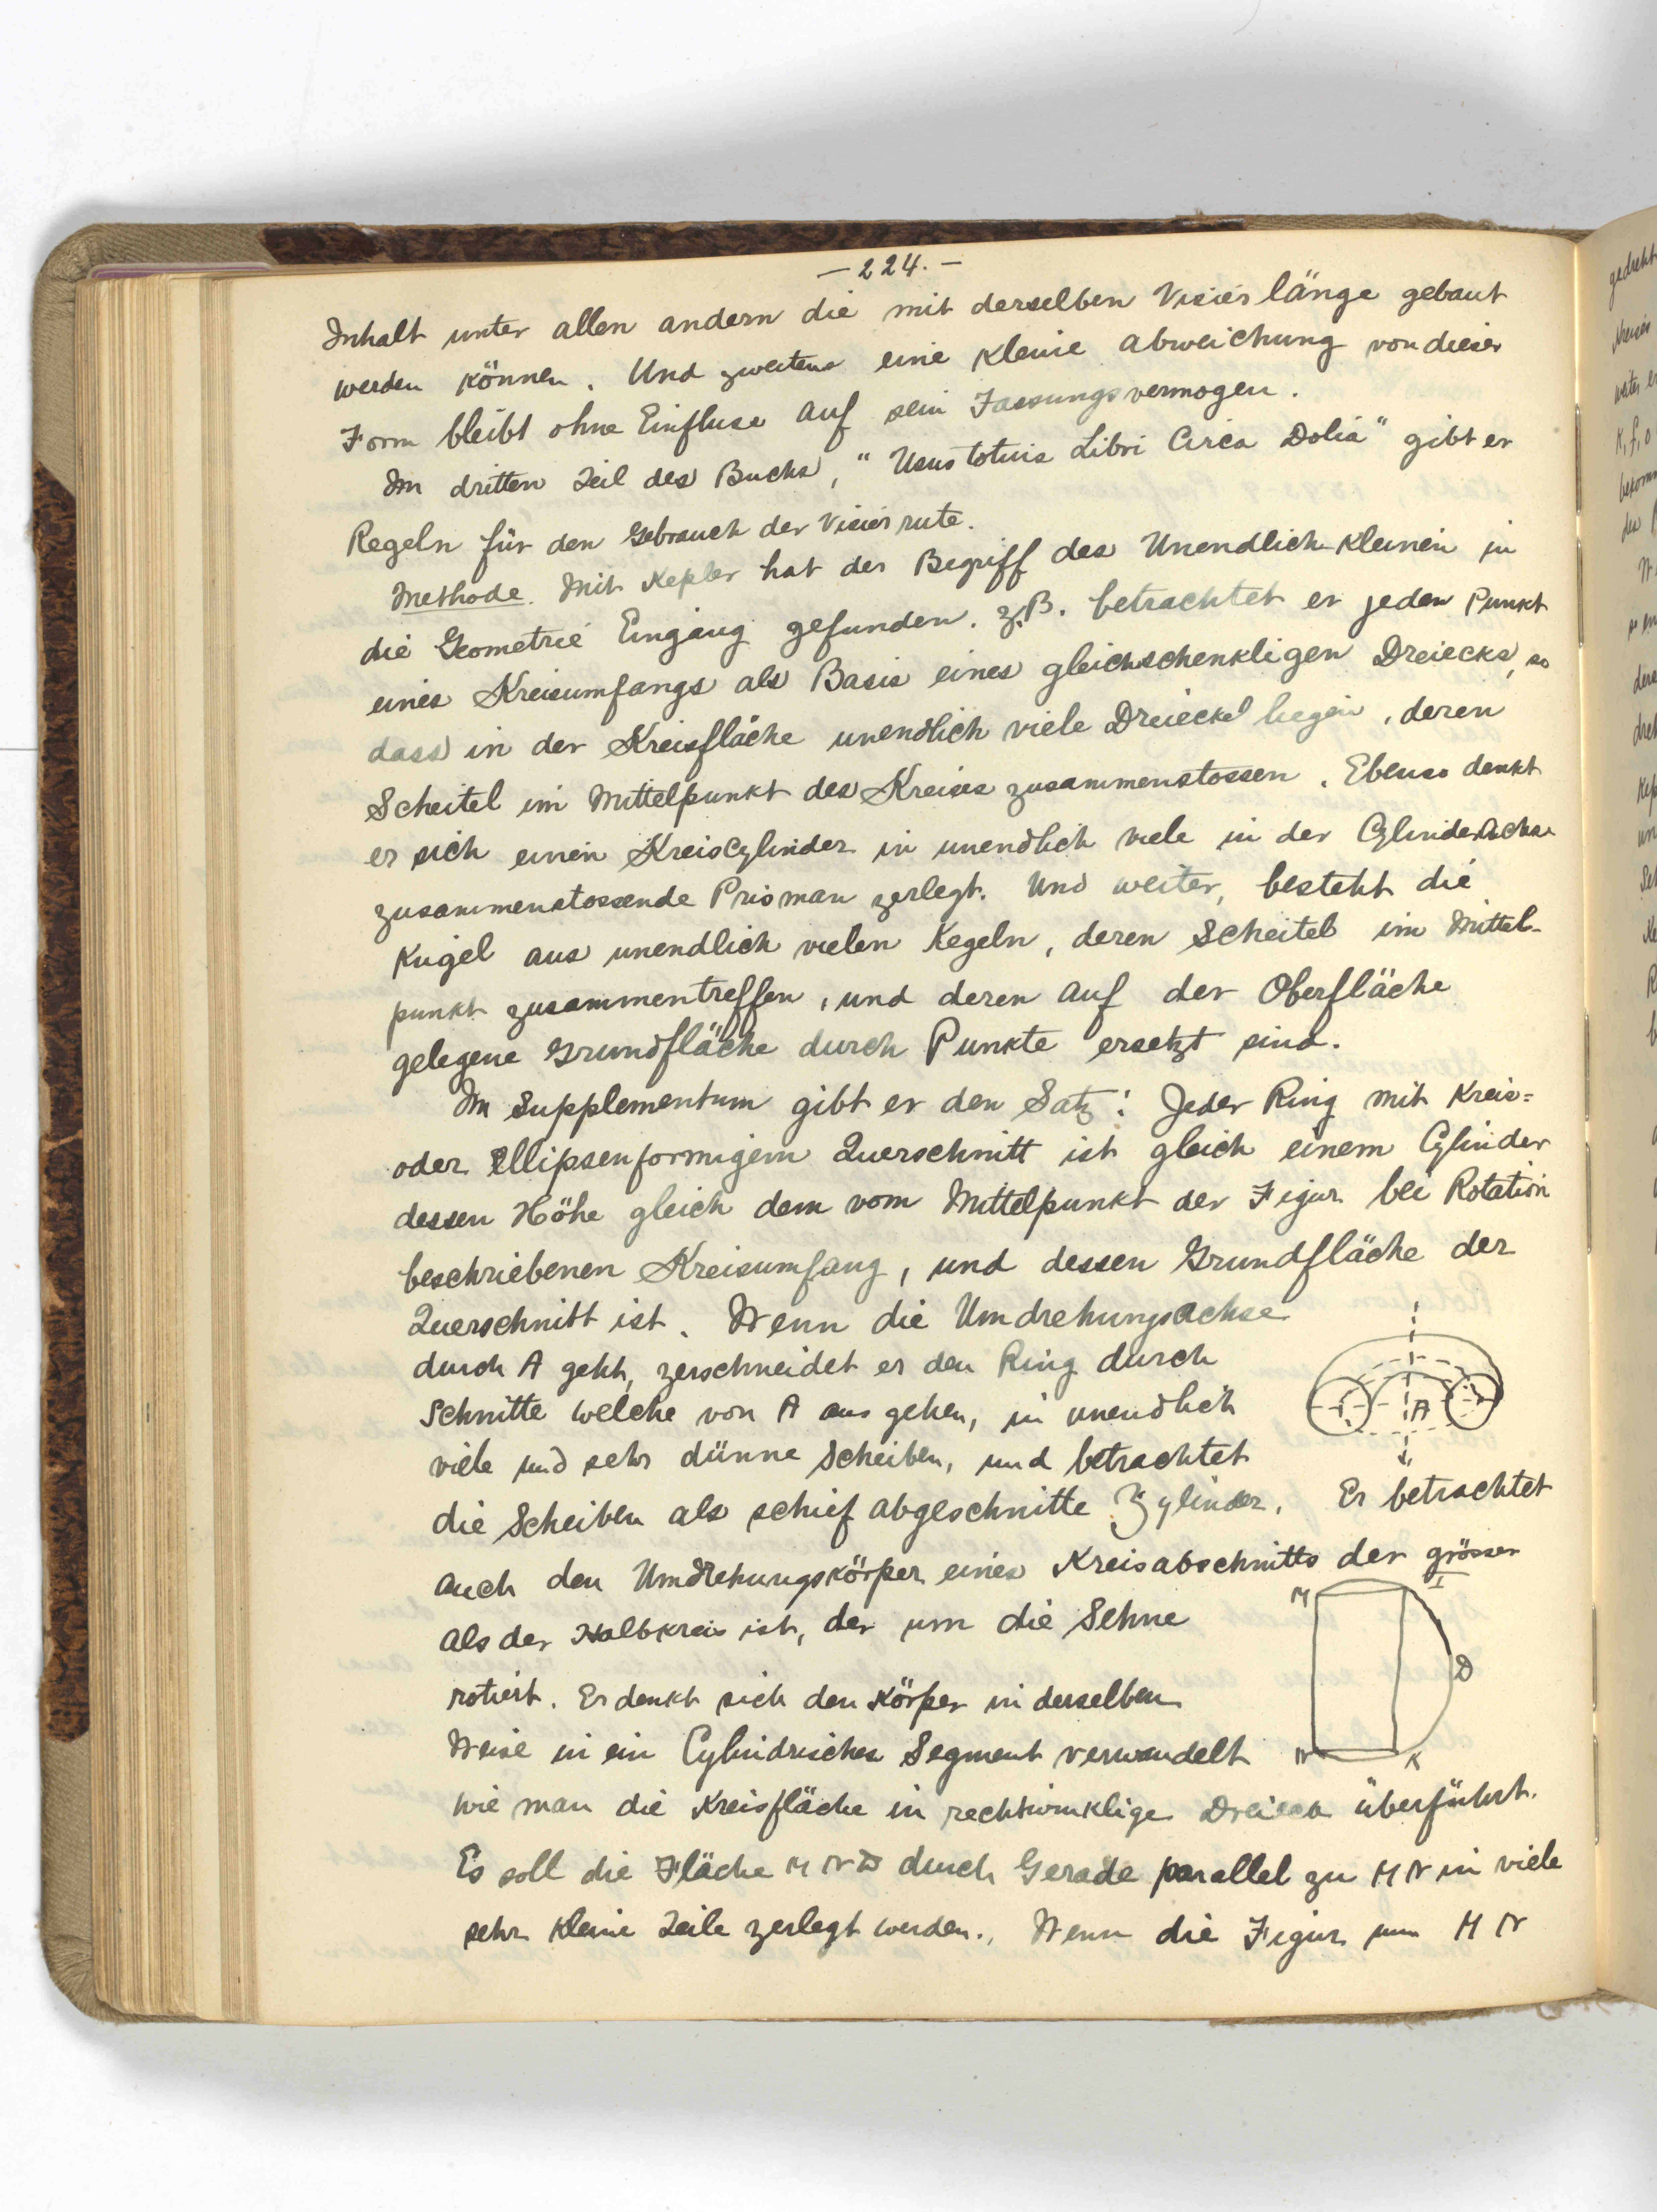 — 224. —
Inhalt unter allen andern die mit derselben Visierlänge gebaut
werden können. Und zweitens eine kleine abweichung von dieser
Form bleibt ohne Einfluss auf sein Fassungsvermogen.
Im dritten Teil des Buchs, "Usus totius Libri Circa Dolia" gibt er
Regeln für den Gebrauch der Visierrute.
Methode. Mit Kepler hat der Begriff des Unendlich-kleinen in
die Geometrie Eingang gefunden. z.B. betrachtet er jeden Punkt
eines Kreisumfangs als Basis eines gleichschenkligen Dreiecks, so
dass in der Kreisfläche unendlich viele Dreiecke liegen, deren
Scheitel im Mittelpunkt des Kreises zusammenstossen. Ebenso denkt
er sich einen Kreiscylinder in unendlich viele in der Cylinderachse
zusammenstossende Prisman zerlegt. Und weiter, besteht die
Kugel aus unendlich vielen Kegeln, deren Scheitel im Mittel-
punkt zusammentreffen, und deren auf der Oberfläche
gelegene Grundfläche durch Punkte ersetzt sind.
Im Supplementum gibt er den Satz: Jeder Ring mit Kreis=
oder Ellipsenformigem Querschnitt ist gleich einem Cylinder
dessen Höhe gleich dem vom Mittelpunkt der Figur bei Rotation
beschriebenen Kreisumfang, und dessen Grundfläche der
Querschnitt ist. Wenn die Umdrehungsachse
durch A geht, zerschneidet er den Ring durch
Schnitte welche von A aus gehen, in unendlich
viele und sehr dünne Scheiben, und betrachtet
die Scheiben als schief abgeschnitte Zylinder. Er betrachtet
auch den Umdrehungskörper eines Kreisabschnitts der grösser
als der Halbkreis ist, der um die Sehne
rotiert. Er denkt sich den Körper in derselben
Weise in ein Cylindrisches Segment verwandelt
wie man die Kreisfläche in rechtwinklige Dreieck überführt.
Es soll die Fläche MND durch Gerade parallel zu MN in viele
sehr kleine Teile zerlegt werden. Wenn die Figur um MN
A
M
I
D
N
K